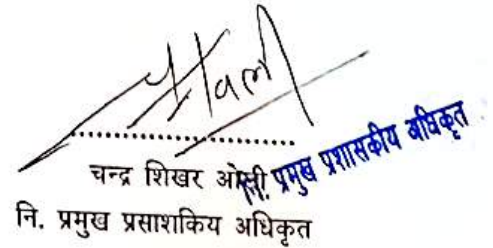 चन्द्र शिखर ओली
नि. प्रमुख प्रसाशकिय अधिकृत
नि. प्रमुख प्रशासकीय अधिकृत